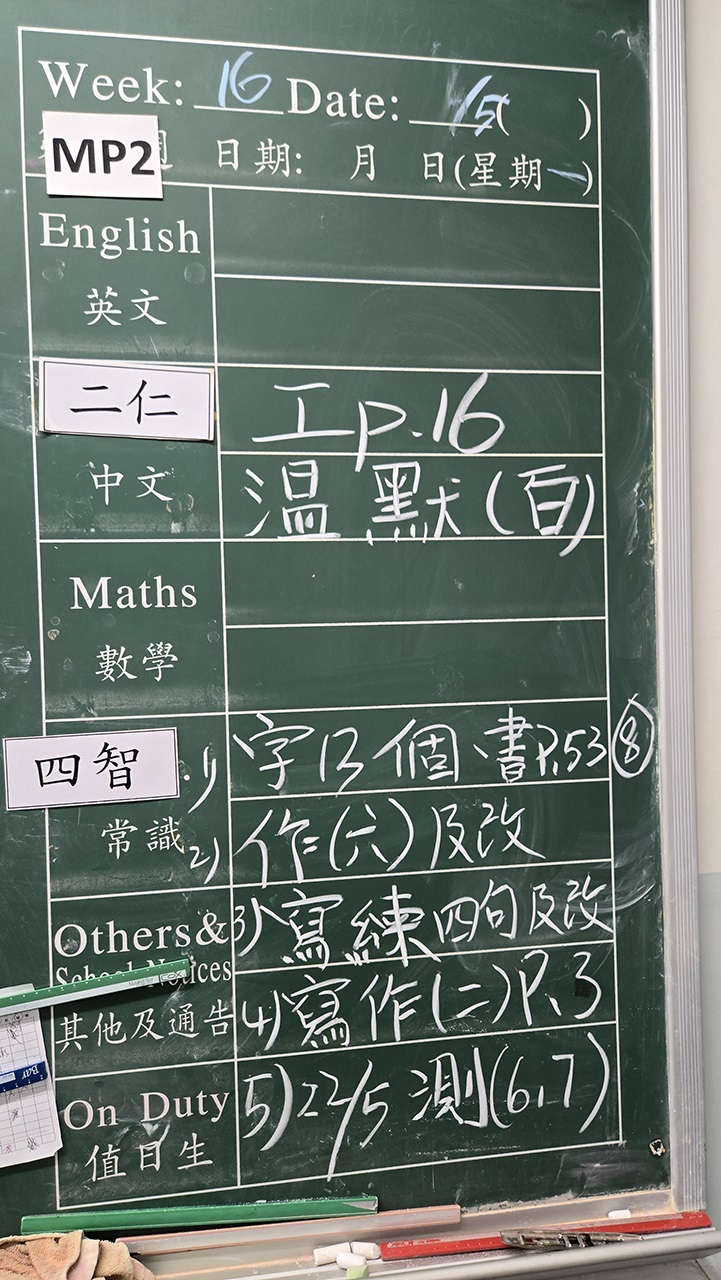 Week: 16 Date: /5( )
MP2 週 日期: 月 日(星期一)
English
英文
二仁
工p.16
中文
温默(百)
Maths
數學
四智
1) 字13個、書P.53⑧
常識
2) 作=(六)及改
Others&
3) 寫練四句及改
School Notices
其他及通告
4) 寫作(二)P.3
On Duty
5) 22/5 測(6,7)
值日生